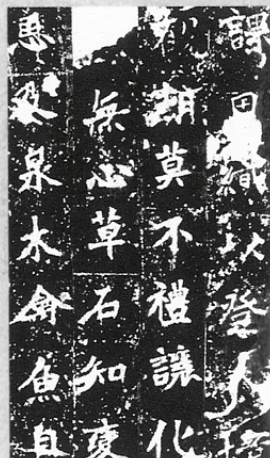 課田織以登人
莫不禮讓化
無心草石知變
惠及泉木禽魚自